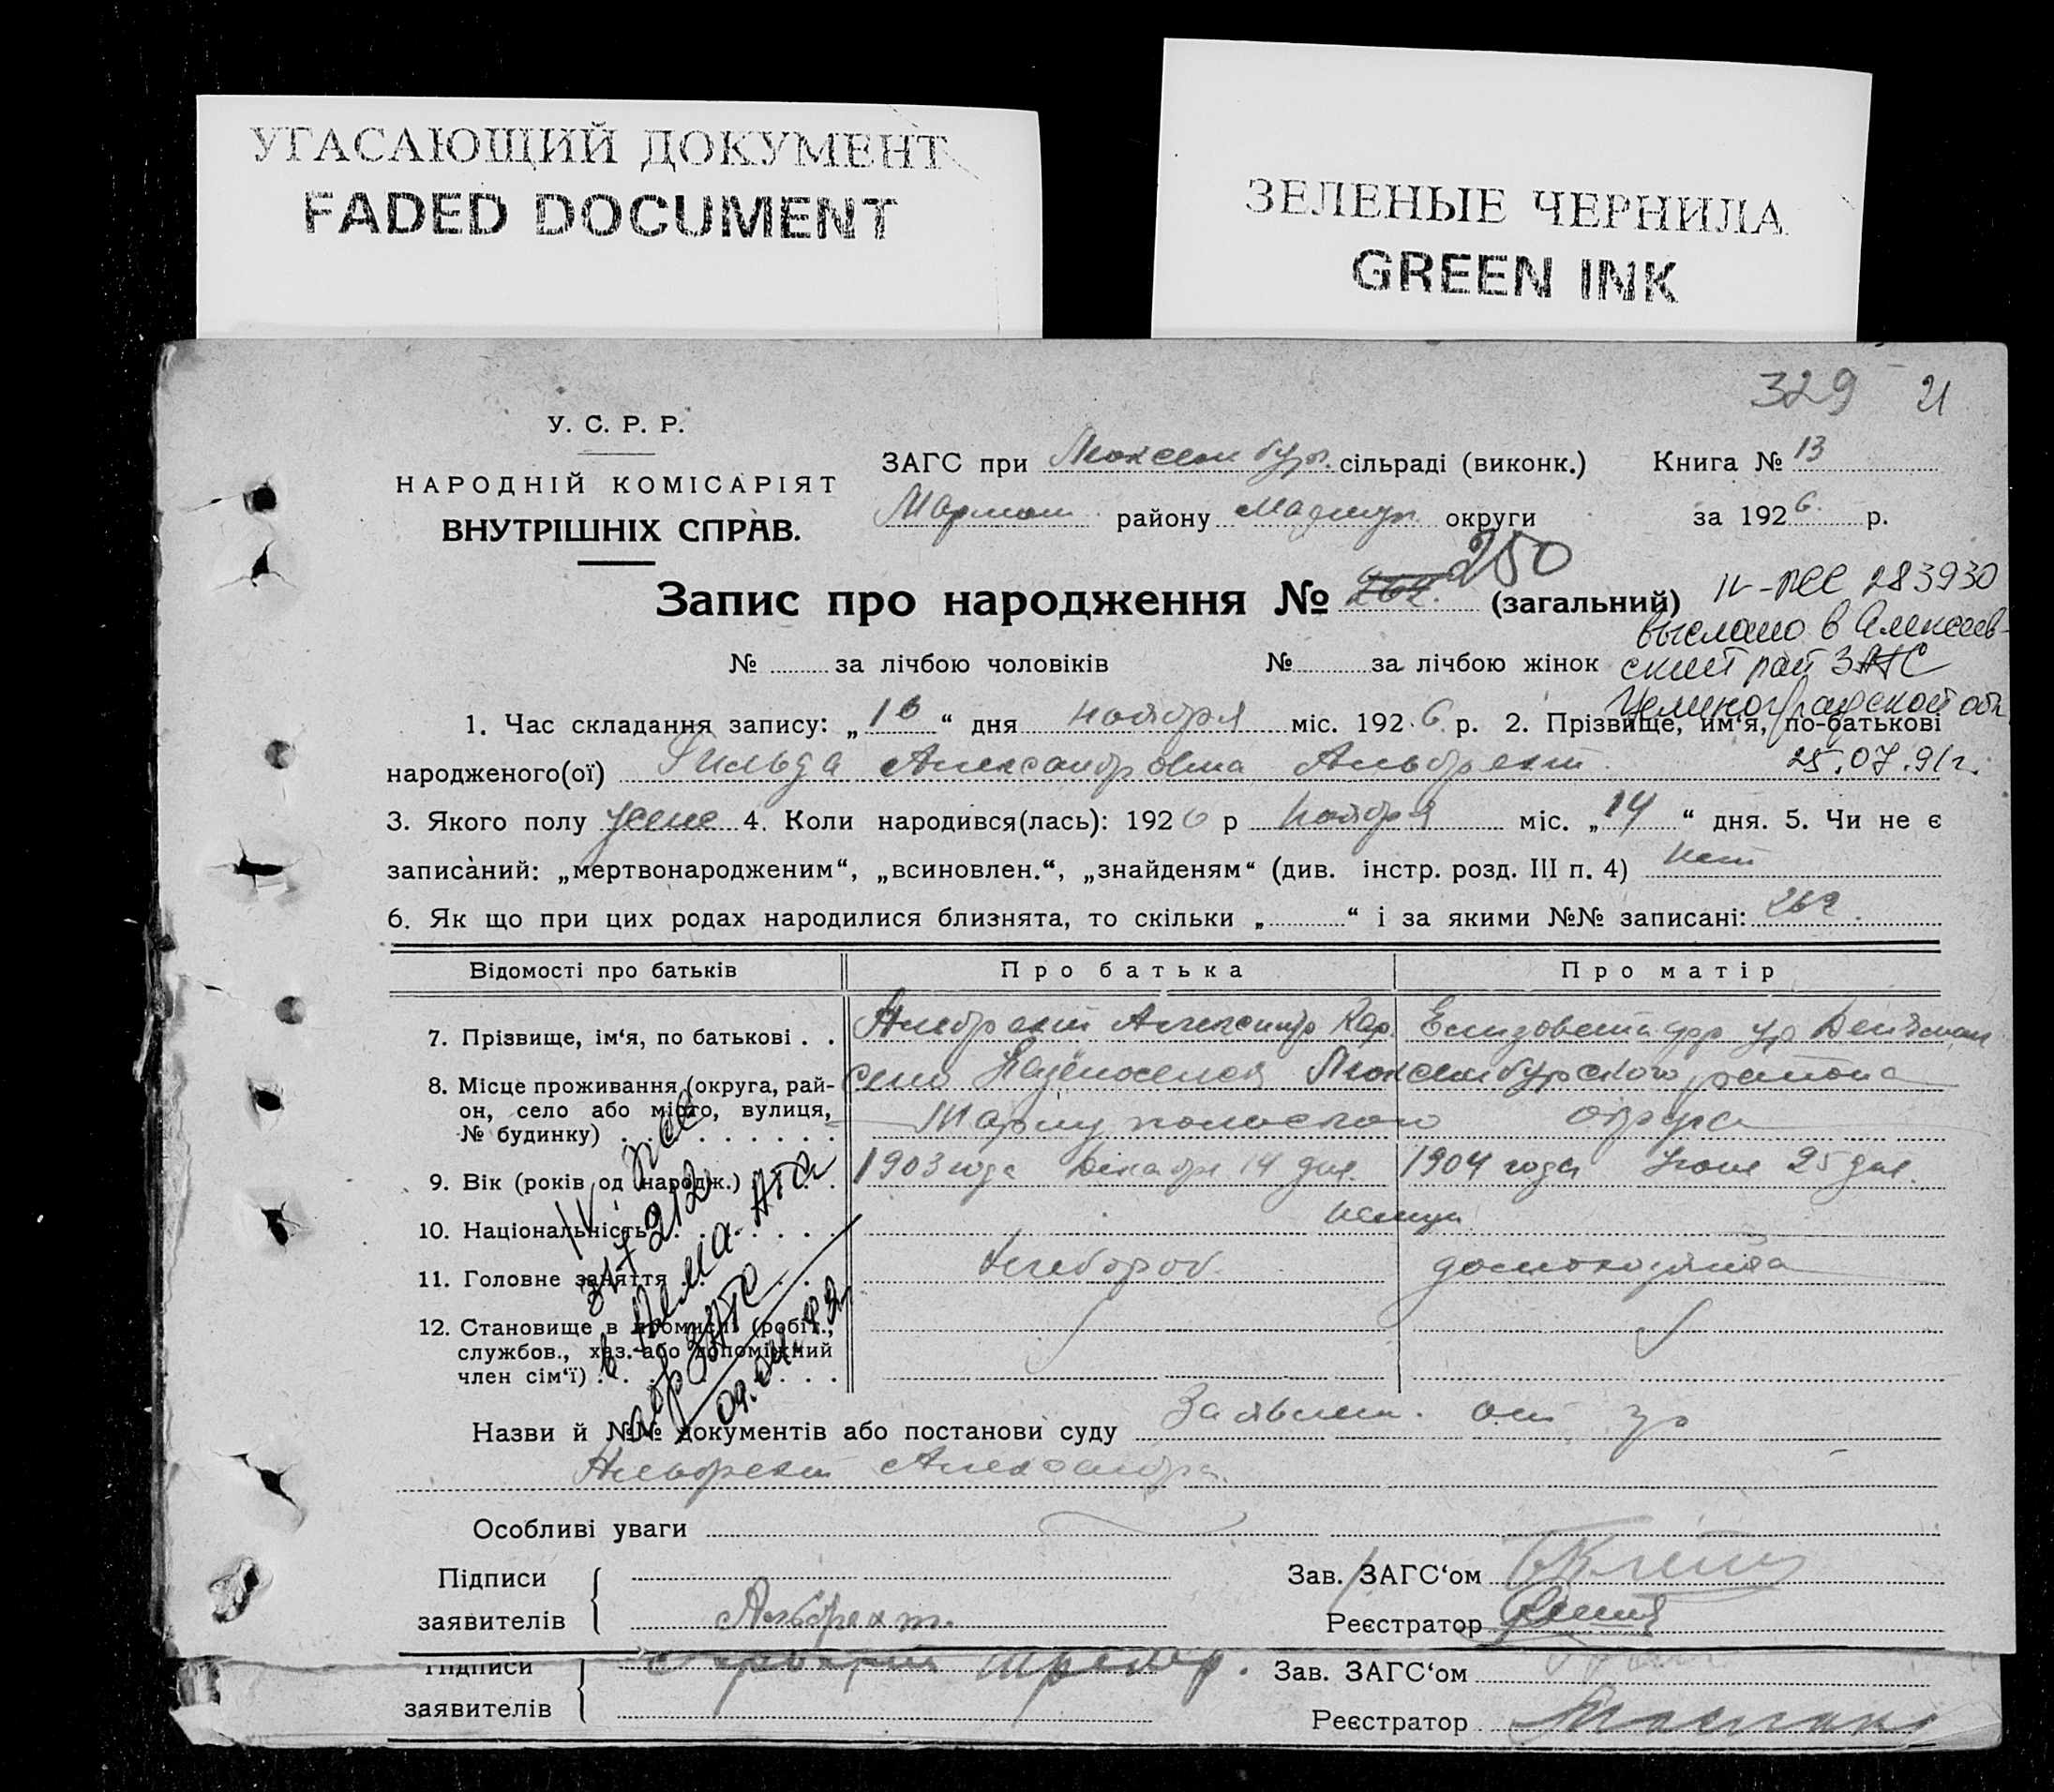 УГАСАЮЩИЙ ДОКУМЕНТ
FADED DOCUMENT
ЗЕЛЕНЫЕ ЧЕРНИЛА
GREEN INK
329 21
У. С. Р. Р.
НАРОДНІЙ КОМІСАРІЯТ
ВНУТРІШНІХ СПРАВ.
ЗАГС при Люксембург. сільраді (виконк.) Книга № 13
району Мариуп. округи за 1926 р.
Запис про народження № 262. 250 (загальний)
283930
выслано в Алексеев-
ский рай ЗАГС
Целиноградской обл
25.07.91г.
№ за лічбою чоловіків № за лічбою жінок
1. Час складання запису: „16“ дня ноября міс. 1926 р. 2. Прізвище, им‘я, по-батькові
народженого(ої) Гильда Александровна Альбрехт
3. Якого полу женс 4. Коли народився(лась): 1926 р ноября міс. „14“ дня. 5. Чи не є
записаний: „мертвонародженим“, „всиновлен.“, „знайденям“ (див. інстр. розд. III п. 4) нет
6. Як що при цих родах народилися близнята, то скільки „ “ і за якими №№ записані: 262.
Відомості про батьків Про батька Про матір
7. Прізвище, ім‘я, по батькові . . Альбрехт Александр Кар. Елизовета
8. Місце проживання (округа, рай-
он, село або місто, вулиця,
№ будинку) . . .
село Люксембургского района
Мариупольского округа
9. Вік (років од народж.) 1903 года Декабря 14 дня. 1904 года Июня 25 дня.
10. Національність немцы
11. Головне заняття Хлебороб. домохозяйка
12. Становище в промислі (робіт.,
службов., хаз. або допоміжний
член сім‘ї) . . .
в Алма-Ата
ЗАГС
09.04.92
Назви й №№ документів або постанови суду Заявлен. от гр
Альбрехт Александра
Особливі уваги
Підписи
заявителів
Альбрехт.
Зав. ЗАГС‘ом
Реєстратор
Підписи
заявителів
Зав. ЗАГС‘ом
Реєстратор